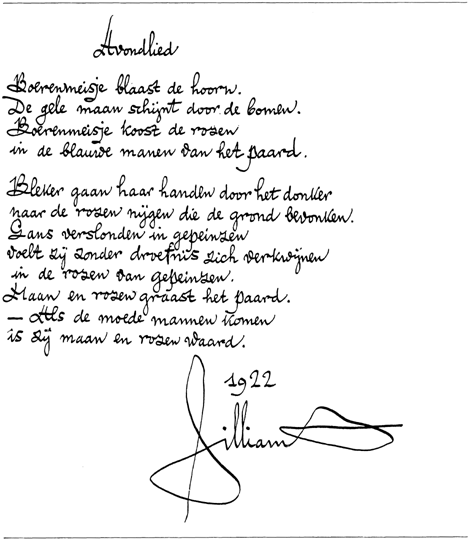 Avondlied
Boerenmeisje blaast de hoorn.
De gele maan schijnt door de bomen.
Boerenmeisje koost de rozen
in de blauwe manen van het paard.
Bleker gaan haar handen door het donker
naar de rozen nijgen die de grond bevonken.
Gans verslonden in gepeinzen
voelt zij zonder droefnis zich verkwijnen
in de rozen van gepeinzen.
Maan en rozen graast het paard.
— Als de moede mannen komen
is zij maan en rozen waard.
1922
Jilliam